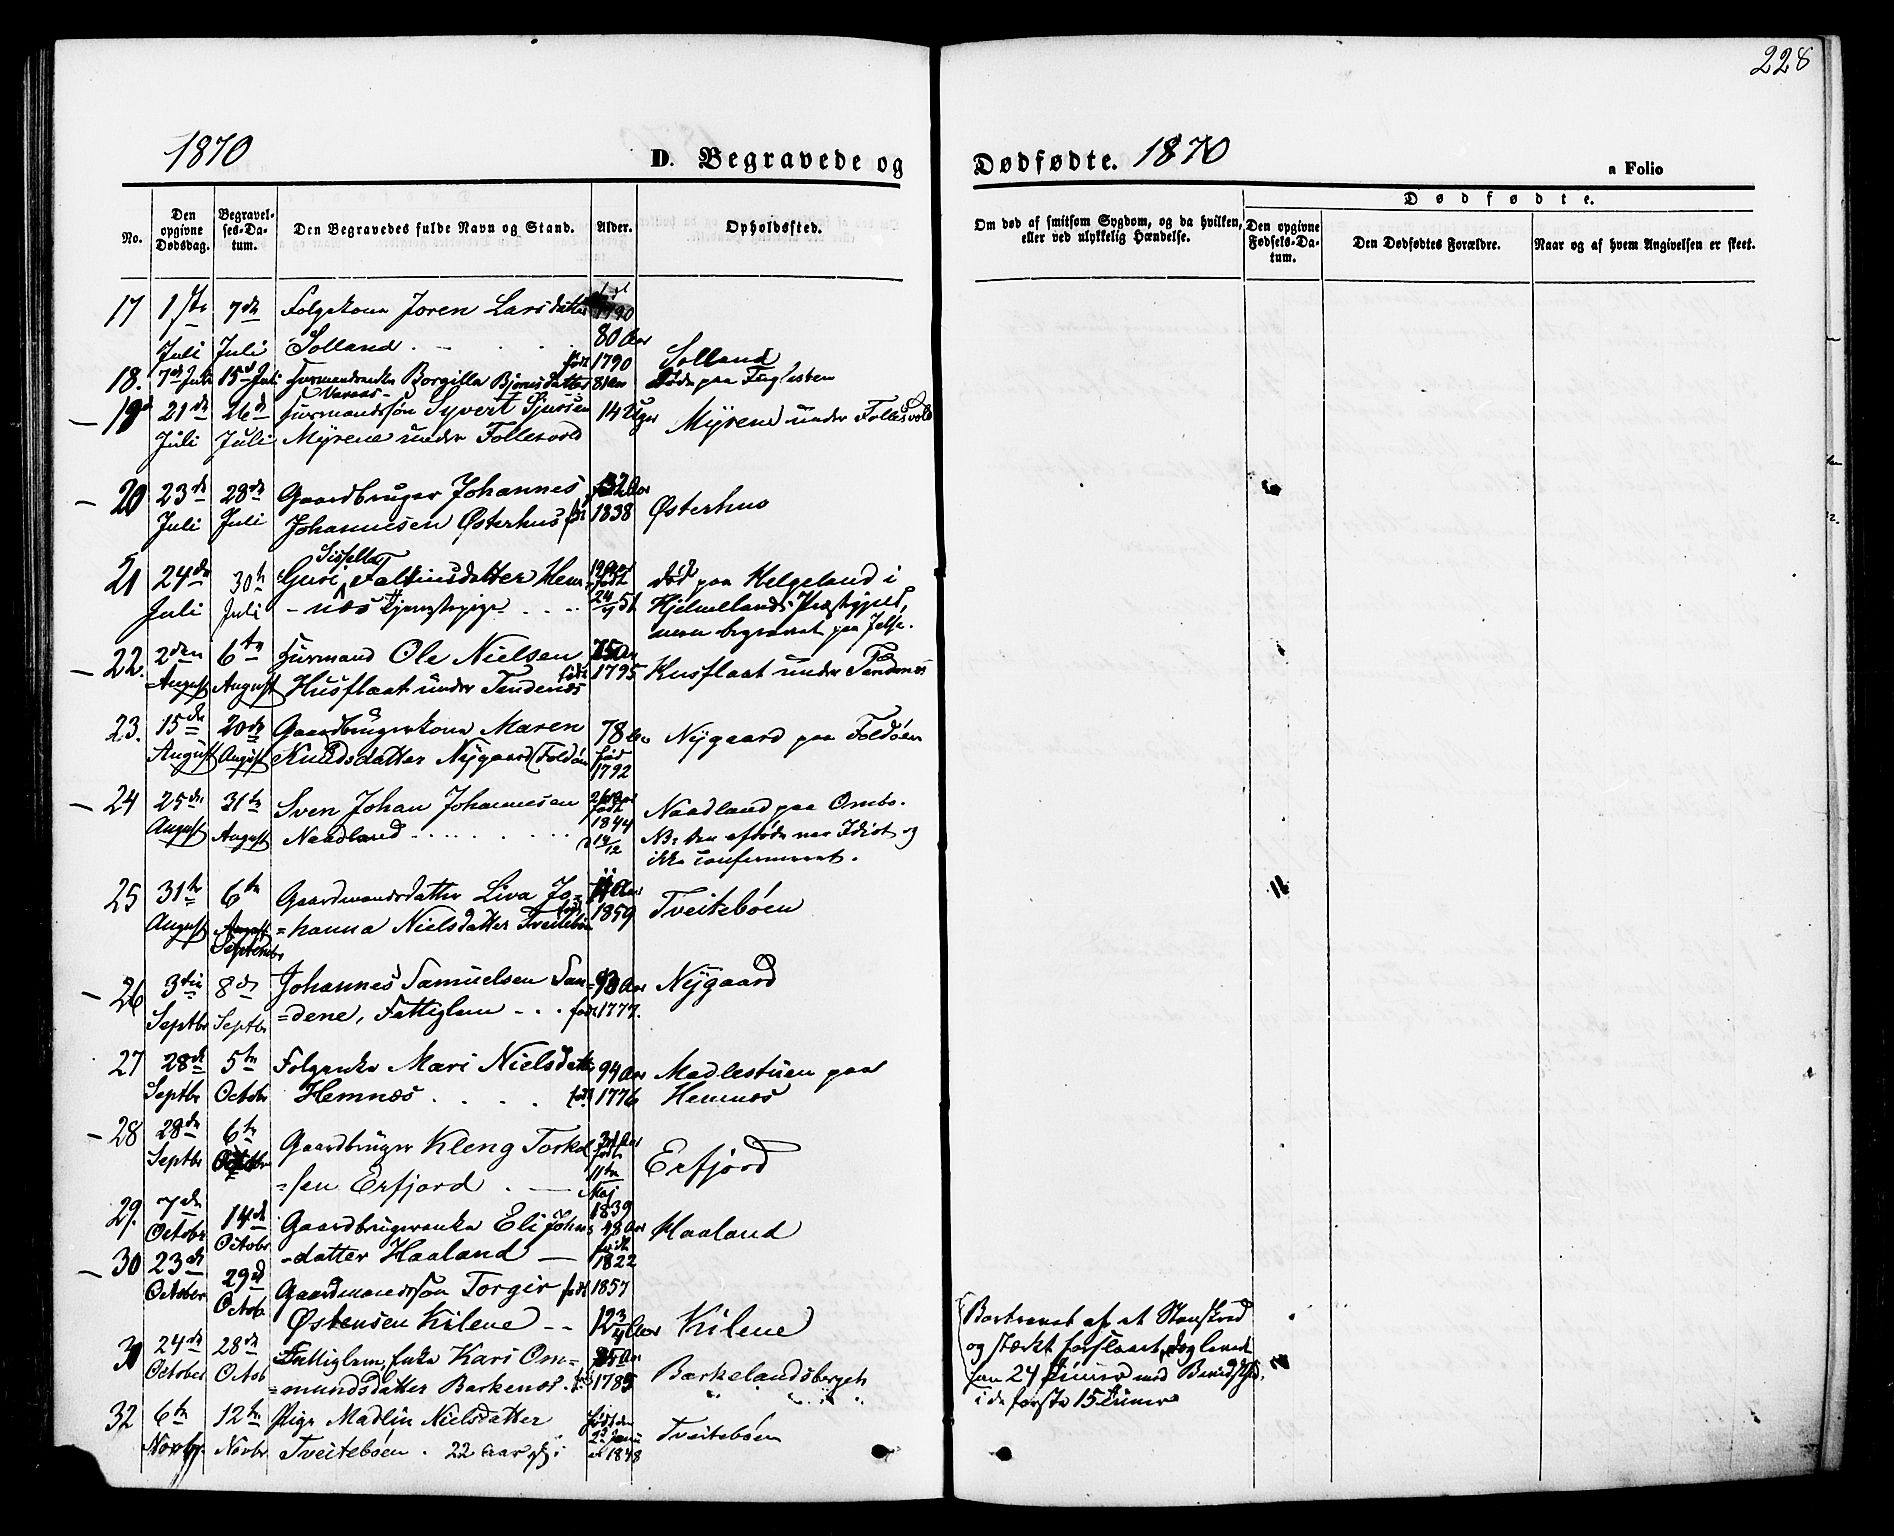 228
1870
D. Begravede og
Dødfødte. 1870
a Folio
No.
Den opgivne Dødsdag.
Begravelses-Datum.
Den Begravedes fulde Navn og Stand.
Alder.
Opholdssted.
Om død af smitsom Sygdom, og da hvilken, eller ved ulykkelig Hændelse.
Dødfødte.
Den opgivne Fødsels-Datum.
Den Dødfødtes Forældre.
Naar og af hvem Angivelsen er skeet.
17 1ste 7de Folgekone Joren Larsdatter 1790
Juli Juli Solland . . 80 Aar Solland
18. 7de Juli 15de Juli Huusmandsenke Borgilla Bjørnsdatter født 1790 Døde paa Fuglesteen
19 21de 26de Huusmandssøn Syvert Sjursen 14 Uger Myrene under Follesvold
Juli Juli Myrene under Follesvold
20 23de 28de Gaardbruger Johannes 32 Aar
Juli Juli Johannesen Østerhus 1838 Østerhus
Sissella
21 24de 30te Guri Hem- 19 Aar født død paa Helgeland i
Juli Juli -næs tjenestepige . . . . 51 Hjelmelands Præstegjeld,
men begravet paa Jelse.
22. 2den 6te Huusmand Ole Nielsen 75 Aar
August August Husflaat under Tendenæs født 1795 Husflaat under Tendenæs
23. 15de 20de Gaardbrugerkone Maren 78 Aar Nygaard paa Foldøen
August August Knudsdatter Nygaard (Foldøen født 1792
24 25de 31te Sven Johan Johannesen 26 Aar født Naadland paa Ombo.
August August Naadland . . . . . 1844 NB: Den afdøde var Idiot og
ikke confirmeret.
25 31te 6te Gaardmandsdatter Liva Jo- 11 Aar
August August =hanna Nielsdatter Tveitebøen født 1859 Tveitebøen
September
26 3die 8de Johannes Samuelsen San- 93 Aar Nygaard
Septbr Septbr =dene, Fattiglem . . . født 1777.
27 28de 5te Folgeenke Mari Nielsdatter 94 Aar Madlestuen paa
Septbr Octobr Hemnæs . . . . født 1776 Hemnæs
28 28de 6te Gaardbruger Kleng Torkel 31 Aar født
Septbr Octobr =sen Erfjord . 11te Maj 1839 Erfjord
29. 7de 14de Gaardbrugerenke Eli Johns 48 Aar Haaland
Octobr Octobr -datter Haaland født 1822
30 23de 29de Gaardmandssøn Torgir født 1857
October Octob Østensen Kilene -- 12 3/4 Aar Kilene
Bortrevet af et Steenskred
og stærkt forslaaet, dog levede
han 24 Timer med Bevidsthed
i de første 15 Timer
31 24de 28de Fattiglem, Enke Kari Om= 85 Aar
October Octob =mundsdatter Barkenæs . født 1785 Barkelandsberget
32 6te 12te Pige Madlin Nielsdatter født den
Novbr. Novbr Tveitebøen . 22 Aar 1848 Tveitebøen